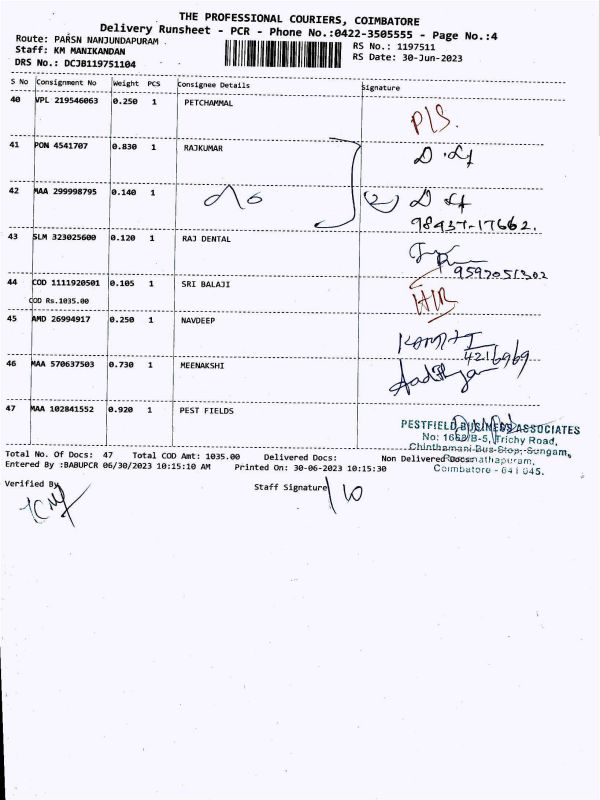 THE PROFESSIONAL COURIERS, COIMBATORE
Delivery Runsheet - PCR - Phone No.:0422-3505555 - Page No.:4
Route: PARSN NANJUNDAPURAM .
RS No.: 1197511
Staff: KM MANIKANDAN
RS Date: 30-Jun-2023
DRS No.: DCJB119751104
S No Consignment No Weight PCS Consignee Details Signature
40 VPL 219546063 0.250 1 PETCHAMMAL
P/S.
41 PON 4541707 0.830 1 RAJKUMAR
42 MAA 299998795 0.140 1
98437-17662.
43 SLM 323025600 0.120 1 RAJ DENTAL
9597051302
44 COD 1111920501 0.105 1 SRI BALAJI
COD Rs.1035.00
45 AMD 26994917 0.250 1 NAVDEEP
4216969
46 MAA 570637503 0.730 1 MEENAKSHI
47 MAA 102841552 0.920 1 PEST FIELDS
PESTFIELD BUSINESS ASSOCIATES
No: 1668/B-5, Trichy Road,
Chinthamani Bus Stop, Sungam,
Ramanathapuram,
Coimbatore - 641 045.
Total No. Of Docs: 47 Total COD Amt: 1035.00 Delivered Docs: Non Delivered Docs:
Entered By :BABUPCR 06/30/2023 10:15:10 AM Printed On: 30-06-2023 10:15:30
Verified By
Staff Signature